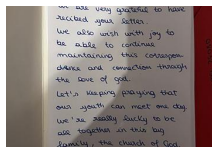 We are very grateful to have
recibed your letter.
We also wish with joy to
be able to continue
maintaining this correspon
dence and connection through
the love of god.
Let's keeping praying that
our youth can meet one day.
We're really lucky to be
all together in this big
family, the church of God